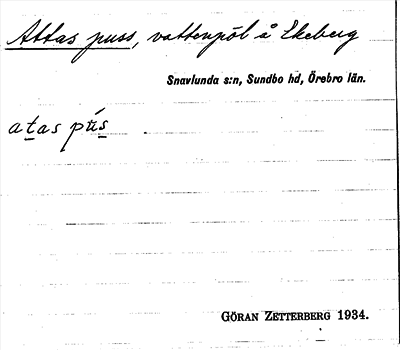 Attas puss, vattenpöl å Ekeberg
Snavlunda s:n, Sundbo hd, Örebro län.
atas pùs
GÖRAN ZETTERBERG 1934.